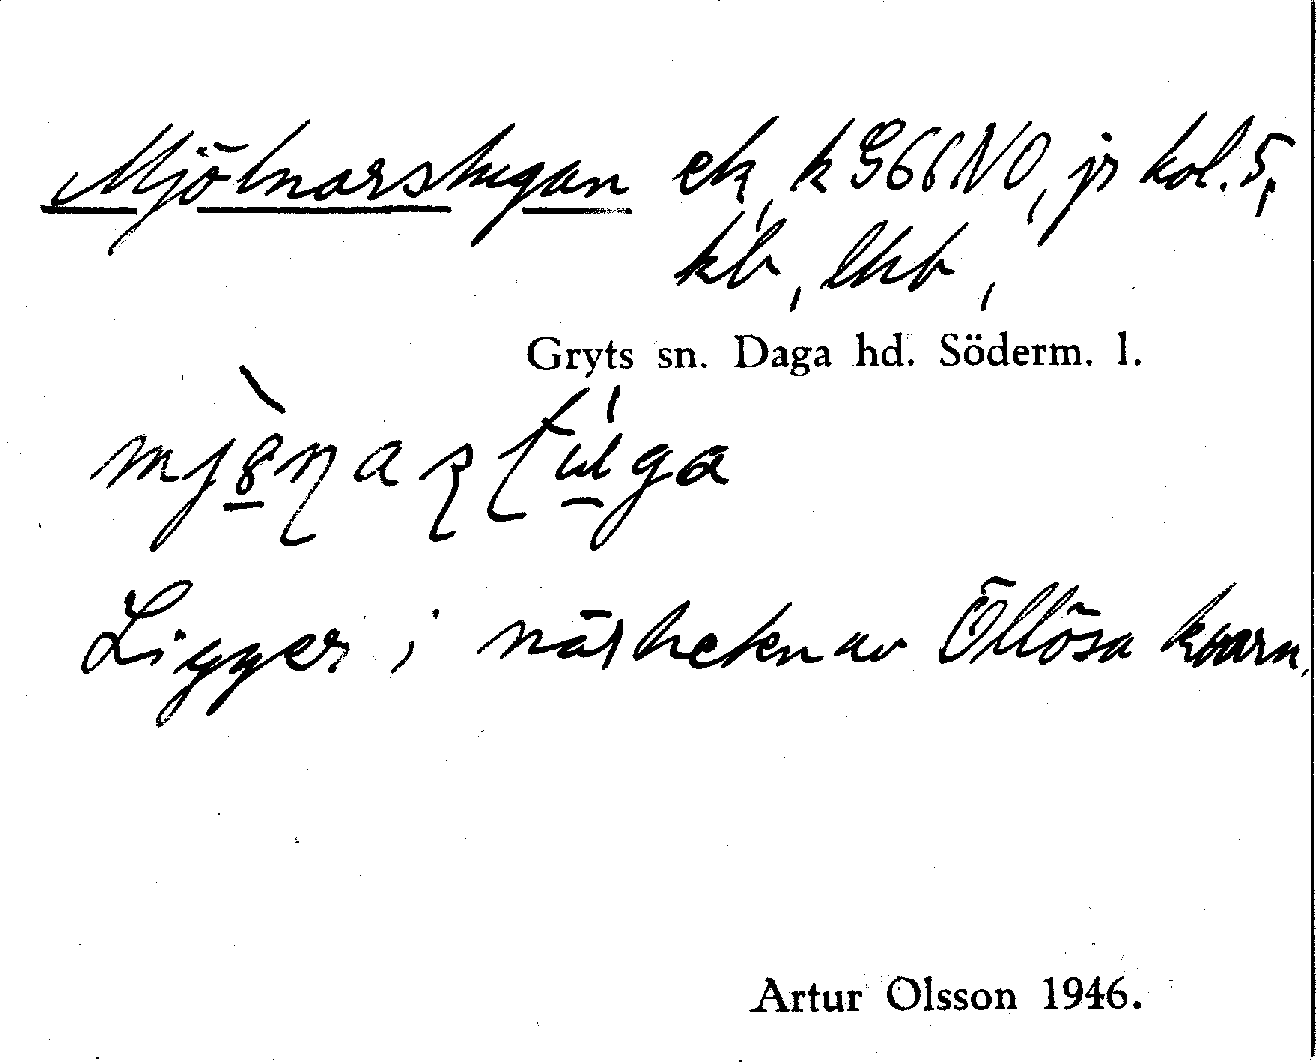 Mjölnarstugan ek, k G66NO, jr kol. 5,
kb, lhb,
Gryts sn. Daga hd. Söderm. l.
Ligger i närheten av Öllösa kvarn.
Artur Olsson 1946.